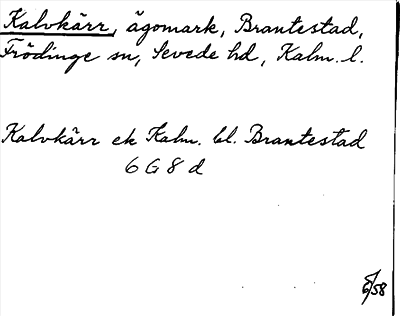 Kalvkärr, ägomark, Brantestad,
Frödinge sn, Sevede hd, Kalm. l.
Kalvkärr ek Kalm. bl. Brantestad
6 G 8 d
6/58